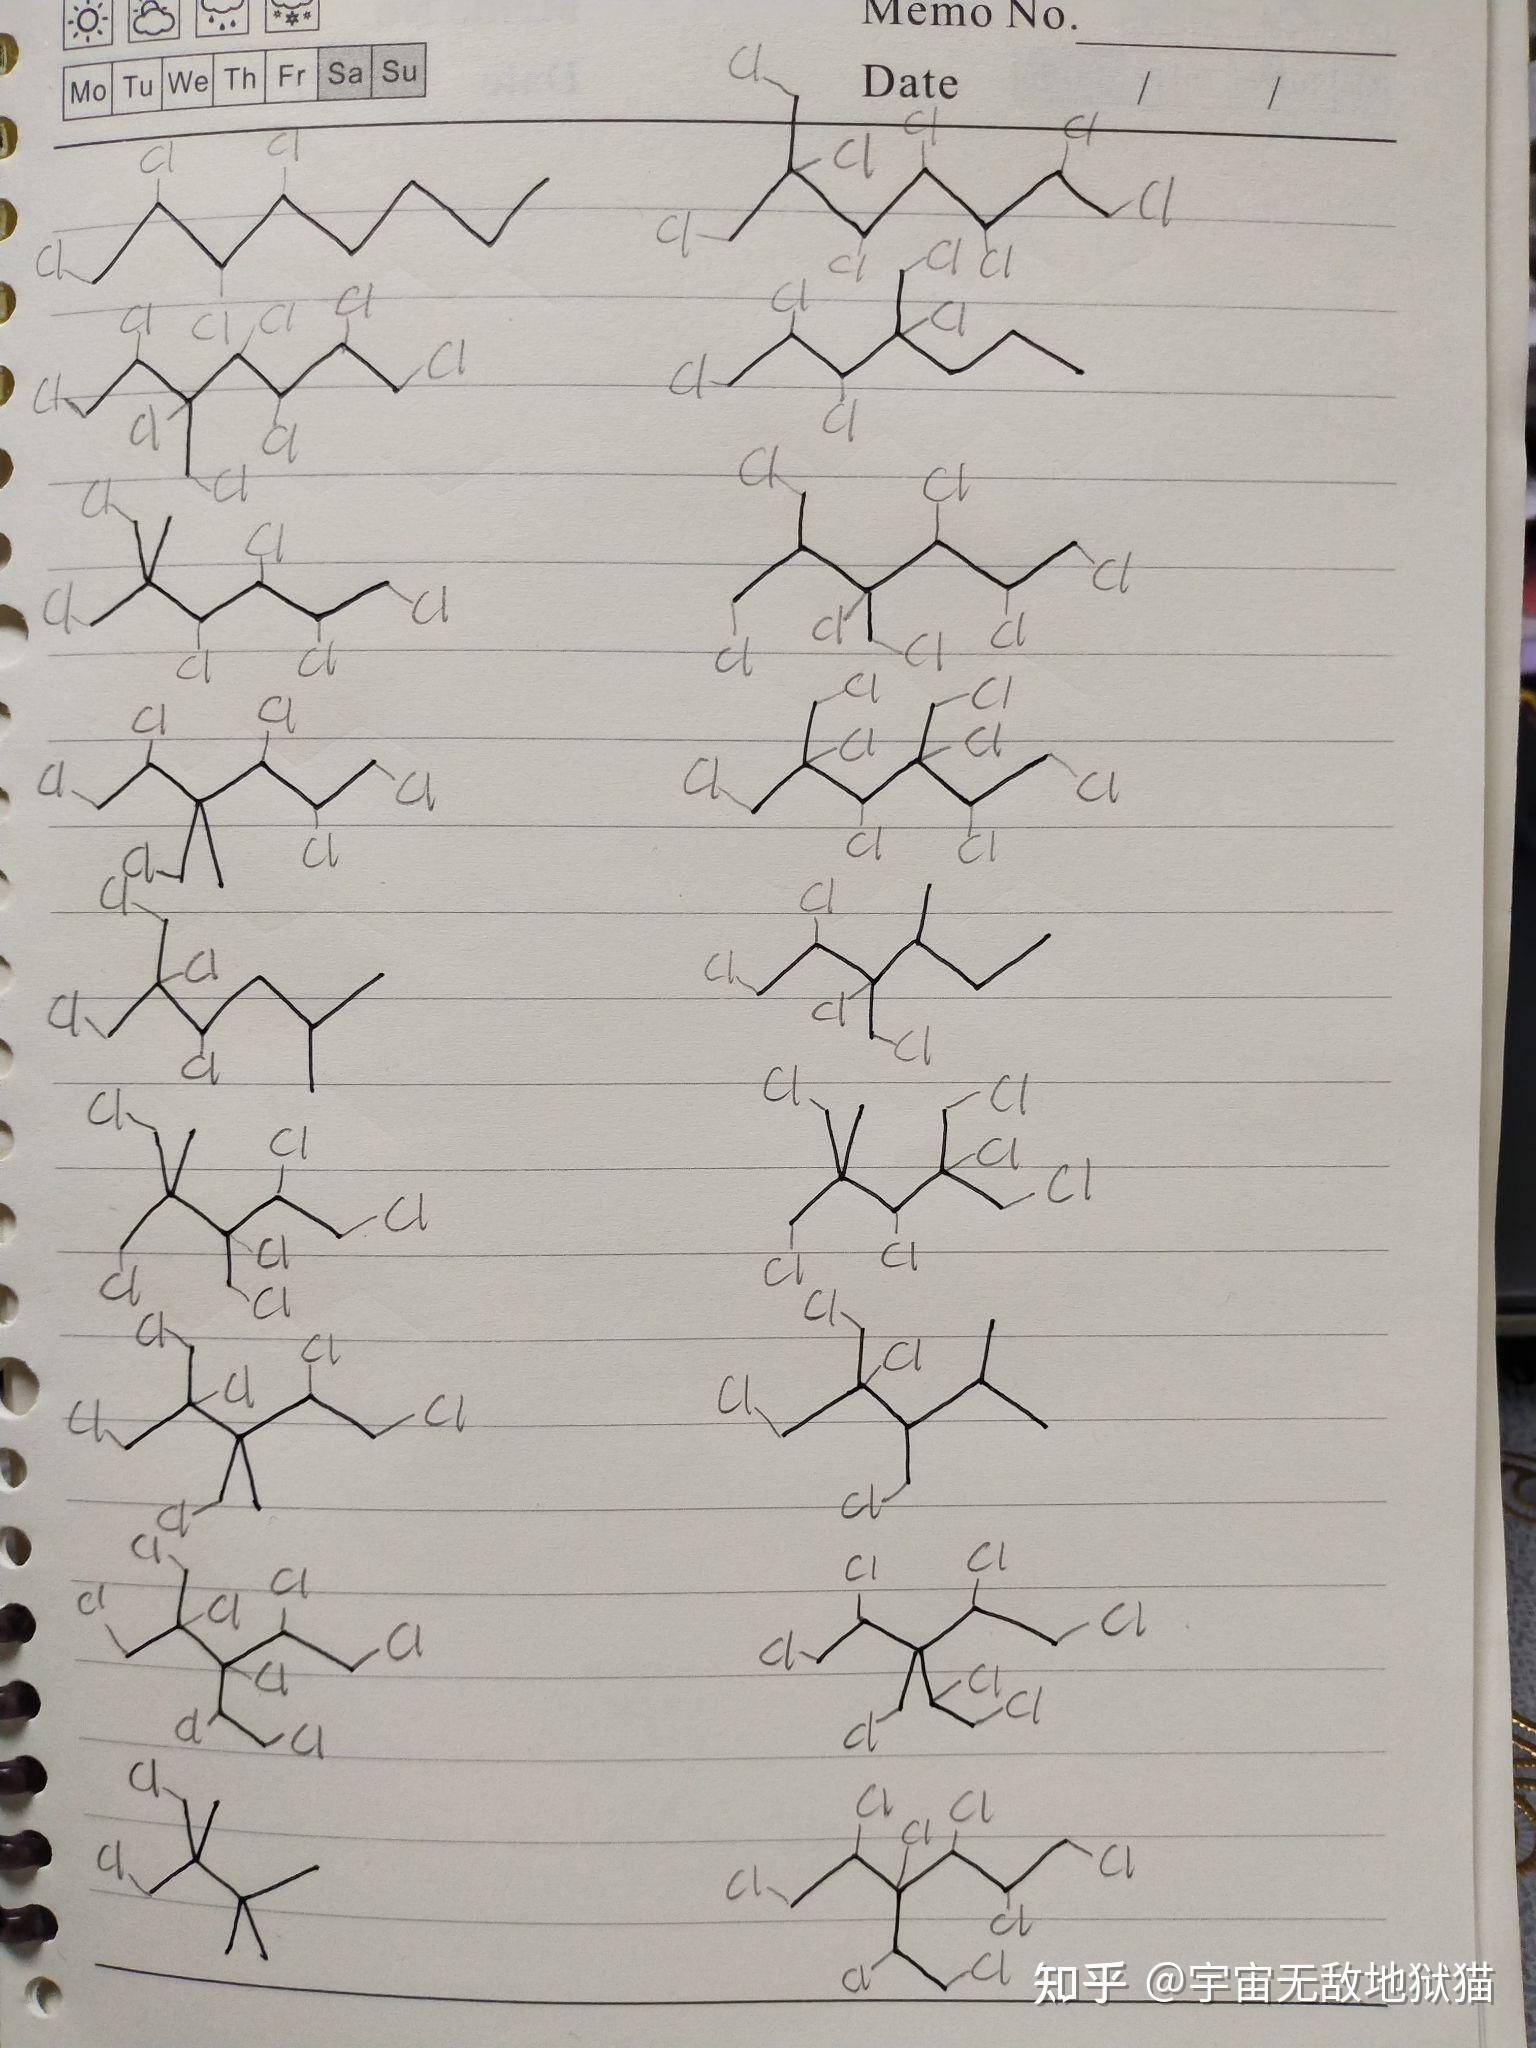 Memo No.
Mo Tu We Th Fr Sa Su
Date / /
Cl
Cl Cl Cl Cl Cl
Cl Cl
Cl Cl Cl Cl
Cl Cl Cl Cl Cl Cl
Cl Cl Cl
Cl Cl Cl Cl
Cl Cl
Cl Cl Cl
Cl Cl Cl
Cl Cl Cl Cl
Cl Cl Cl Cl
Cl Cl
Cl Cl Cl Cl
Cl Cl Cl Cl
Cl Cl Cl Cl
Cl Cl
Cl Cl Cl
Cl Cl Cl
Cl Cl
Cl Cl Cl
Cl Cl Cl
Cl Cl Cl
Cl Cl Cl Cl
Cl Cl
Cl Cl Cl
Cl Cl Cl
Cl Cl
Cl Cl Cl
Cl Cl Cl Cl
Cl Cl Cl
Cl Cl Cl
Cl Cl Cl Cl
Cl Cl Cl
Cl Cl Cl
Cl Cl
知乎 @宇宙无敌地狱猫